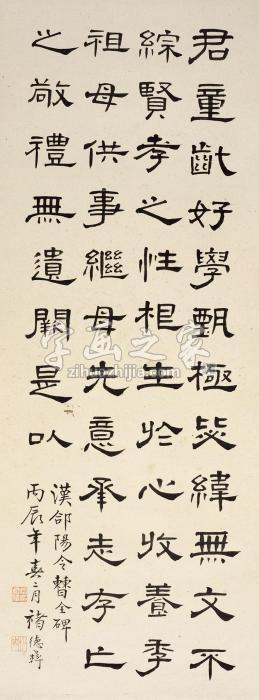 君童齔好學甄極毖緯無文不
綜賢孝之性根生於心收養季
祖母供事繼母先意承志存亡
之敬禮無遺闕是以
漢郃陽令曹全碑
丙辰年春二月褚德彝
字画之家
zihuazhijia.com